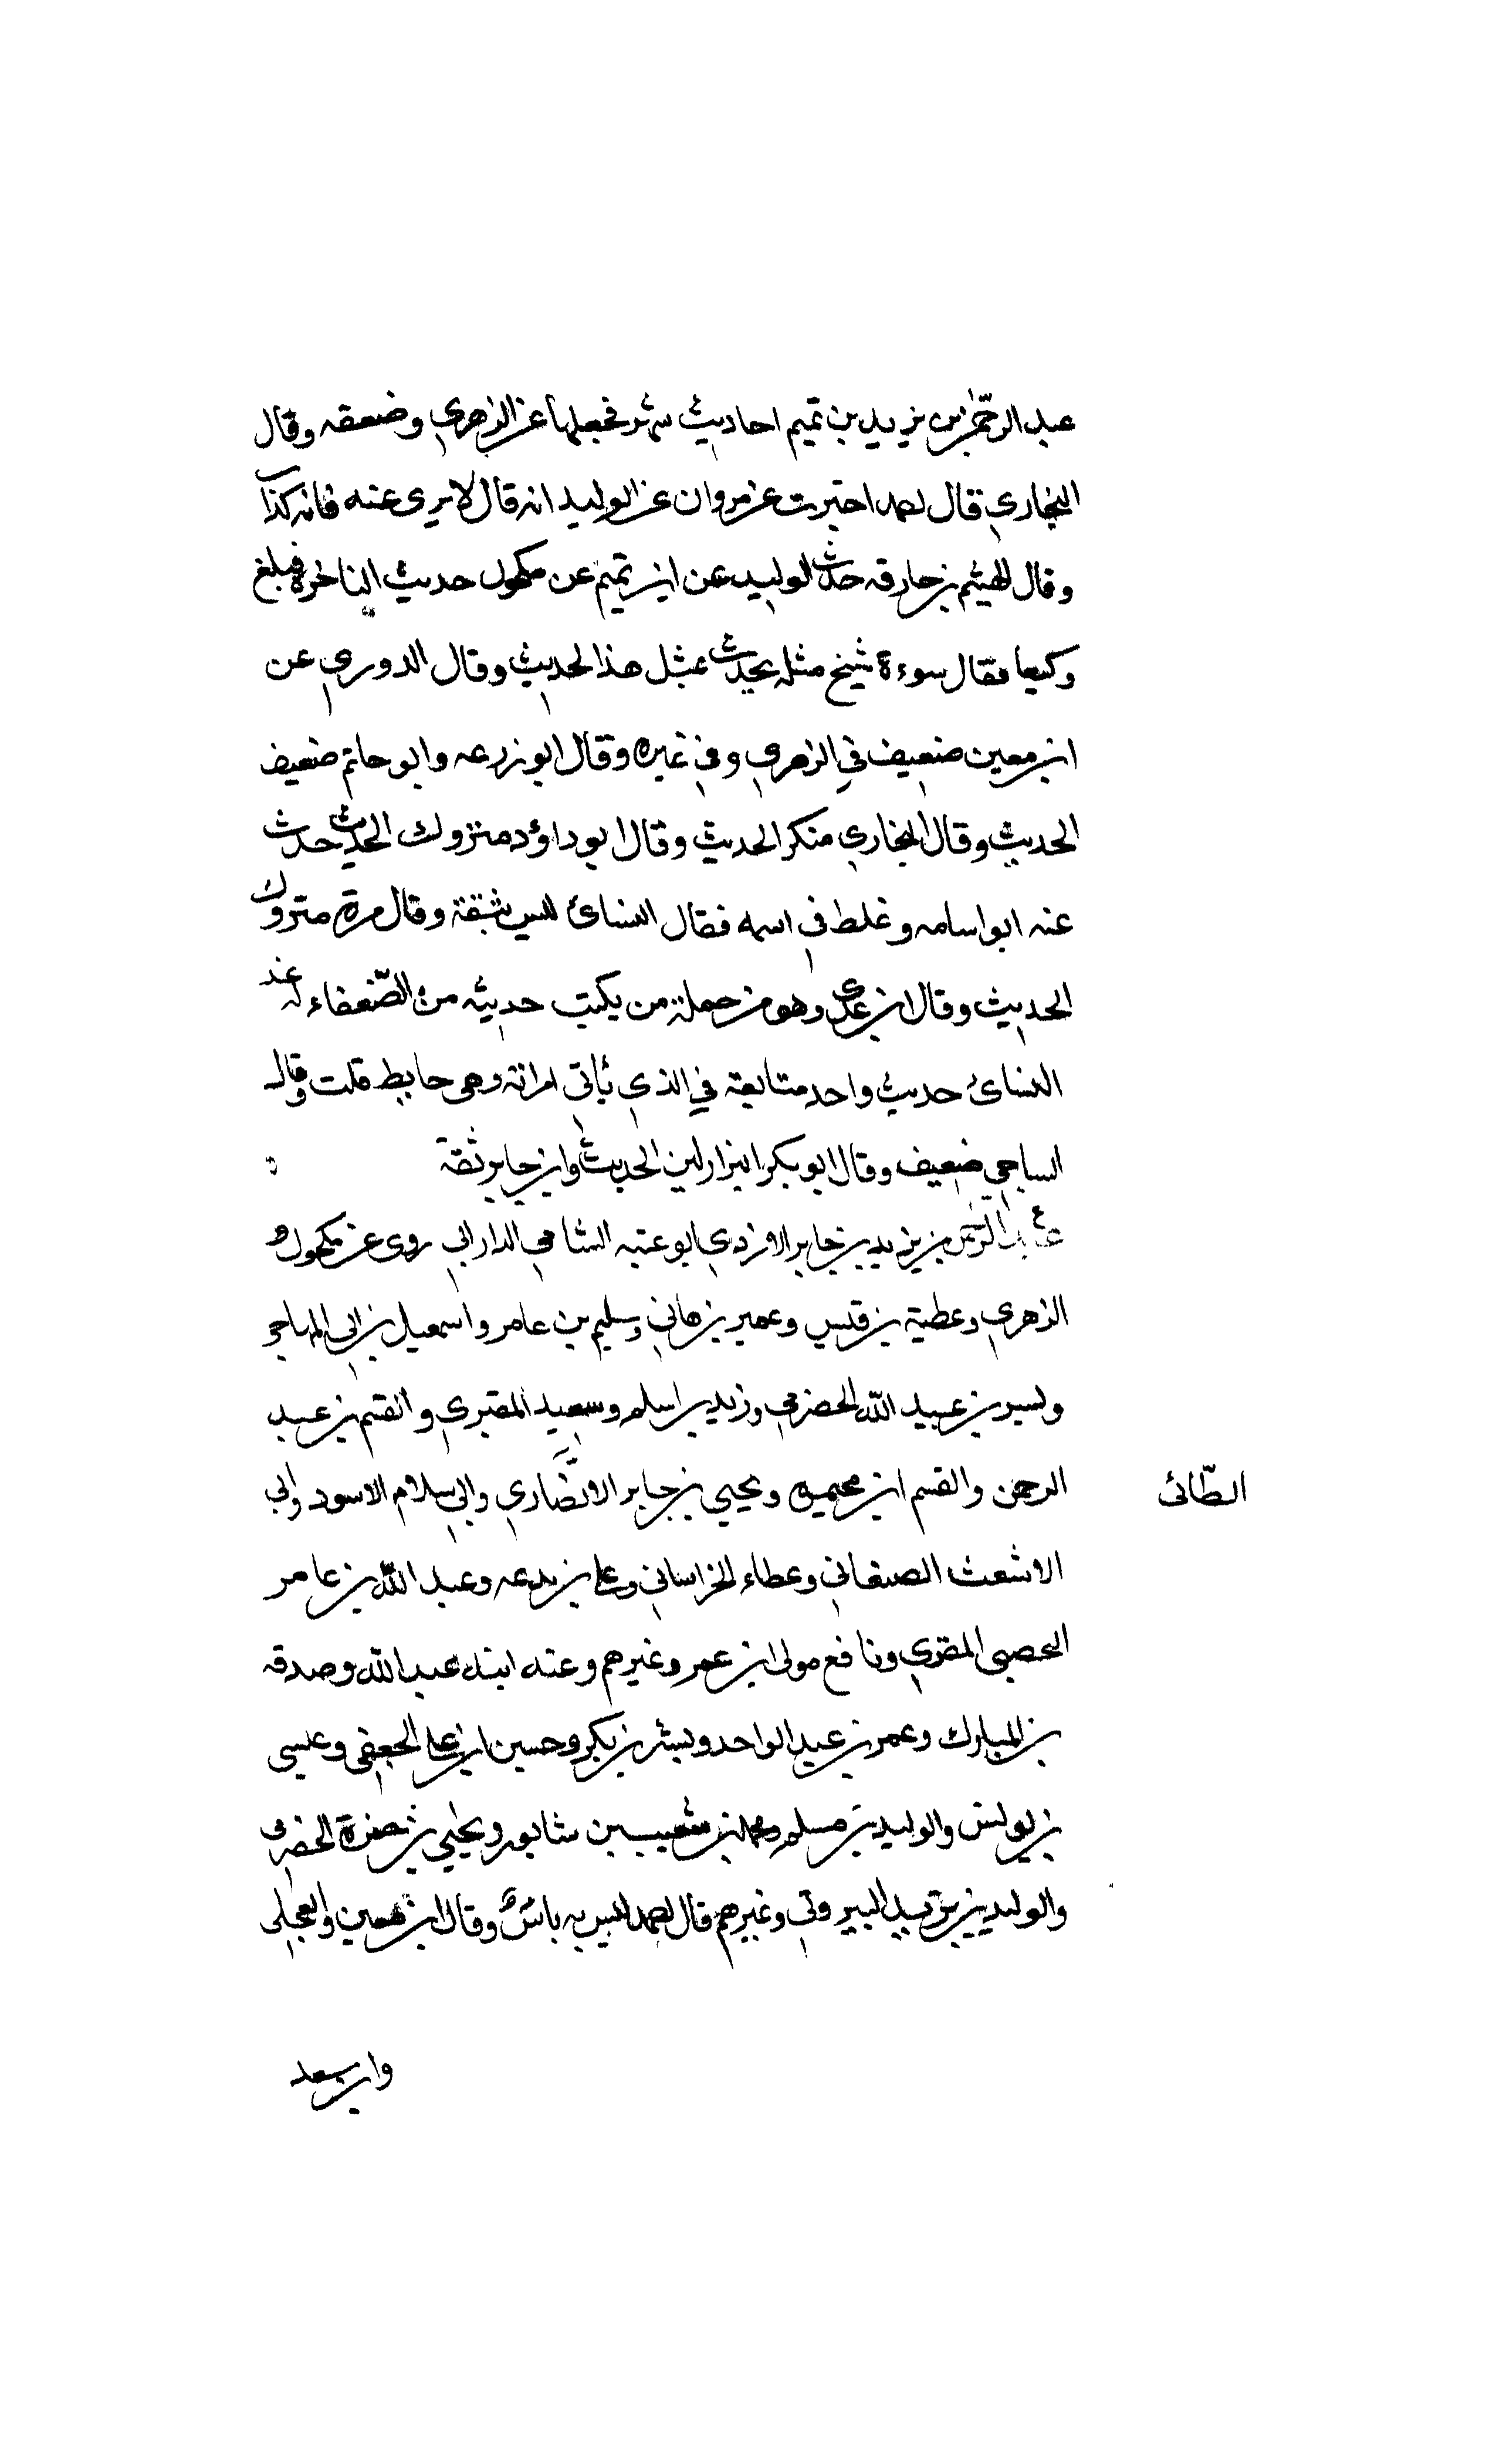 عبد الرحمن بن يزيد بن تميم احاديث شهر فجعلها عن الزهري وضعفه وقال
البخاري قال احمد اخبرت عن مروان عن الوليد انه قال لا يروى عنه فانه كذاب
وقال الهيثم بن خارقه حدث الوليد عن ابن تميم عن مكحول حديث الناخرة فبلغ
وكيعا فقال سوءة شيخ مثله يحدث بمثل هذا الحديث وقال الدوري عن
ابن معين ضعيف في الزهري وفي غيره وقال ابو زرعه وابو حاتم ضعيف
الحديث وقال البخاري منكر الحديث وقال ابو داؤد متروك الحديث حدث
عنه ابو اسامه وغلط في اسمه فقال النسائ ليس بثقة وقال مرة متروك
الحديث وقال ابن عدي وهو من جملة من يكتب حديثه من الضعفاء له عند
النسائ حديث واحد متابعة في الذي يأتى امراته وهى حايط قلت وقال
الساجي ضعيف وقال ابو بكر البزار لين الحديث وابن جابر ثقة
عبد الرحمن بن يزيد بن جابر الازدي ابو عتبه الشامي الداراني روى عن مكحول و
الزهري وعطية بن قيس وعمير بن هاني وسليم بن عامر واسمعيل بن ابي المهاجر
وبسر بن عبيد الله الحضرمي وزيد بن اسلم وسعيد المقبري والقسم بن عبد
الرحمن والقسم ابن مخيمره ويحيي بن جابر الانصاري وابي سلام الاسود وابي
الطّائى
الاشعث الصنعاني وعطاء الخراساني وعلي بن بدعه وعبد الله بن عامر
اليحصبي المقري ونافع مولى ابن عمر وغيرهم وعنه ابنه عبد الله وصدقه
بن المبارك وعمر بن عبد الواحد وبشر بن بكر وحسين ابن علي الجعفي وعيسى
بن يونس والوليد بن مسلم ومحمد بن شعيب بن شابور ويحيي بن حمزة الحضرمي
والوليد بن مزيد البيروتي وغيرهم قال احمد ليس به باس وقال ابن معين والعجلي
وابن سعد